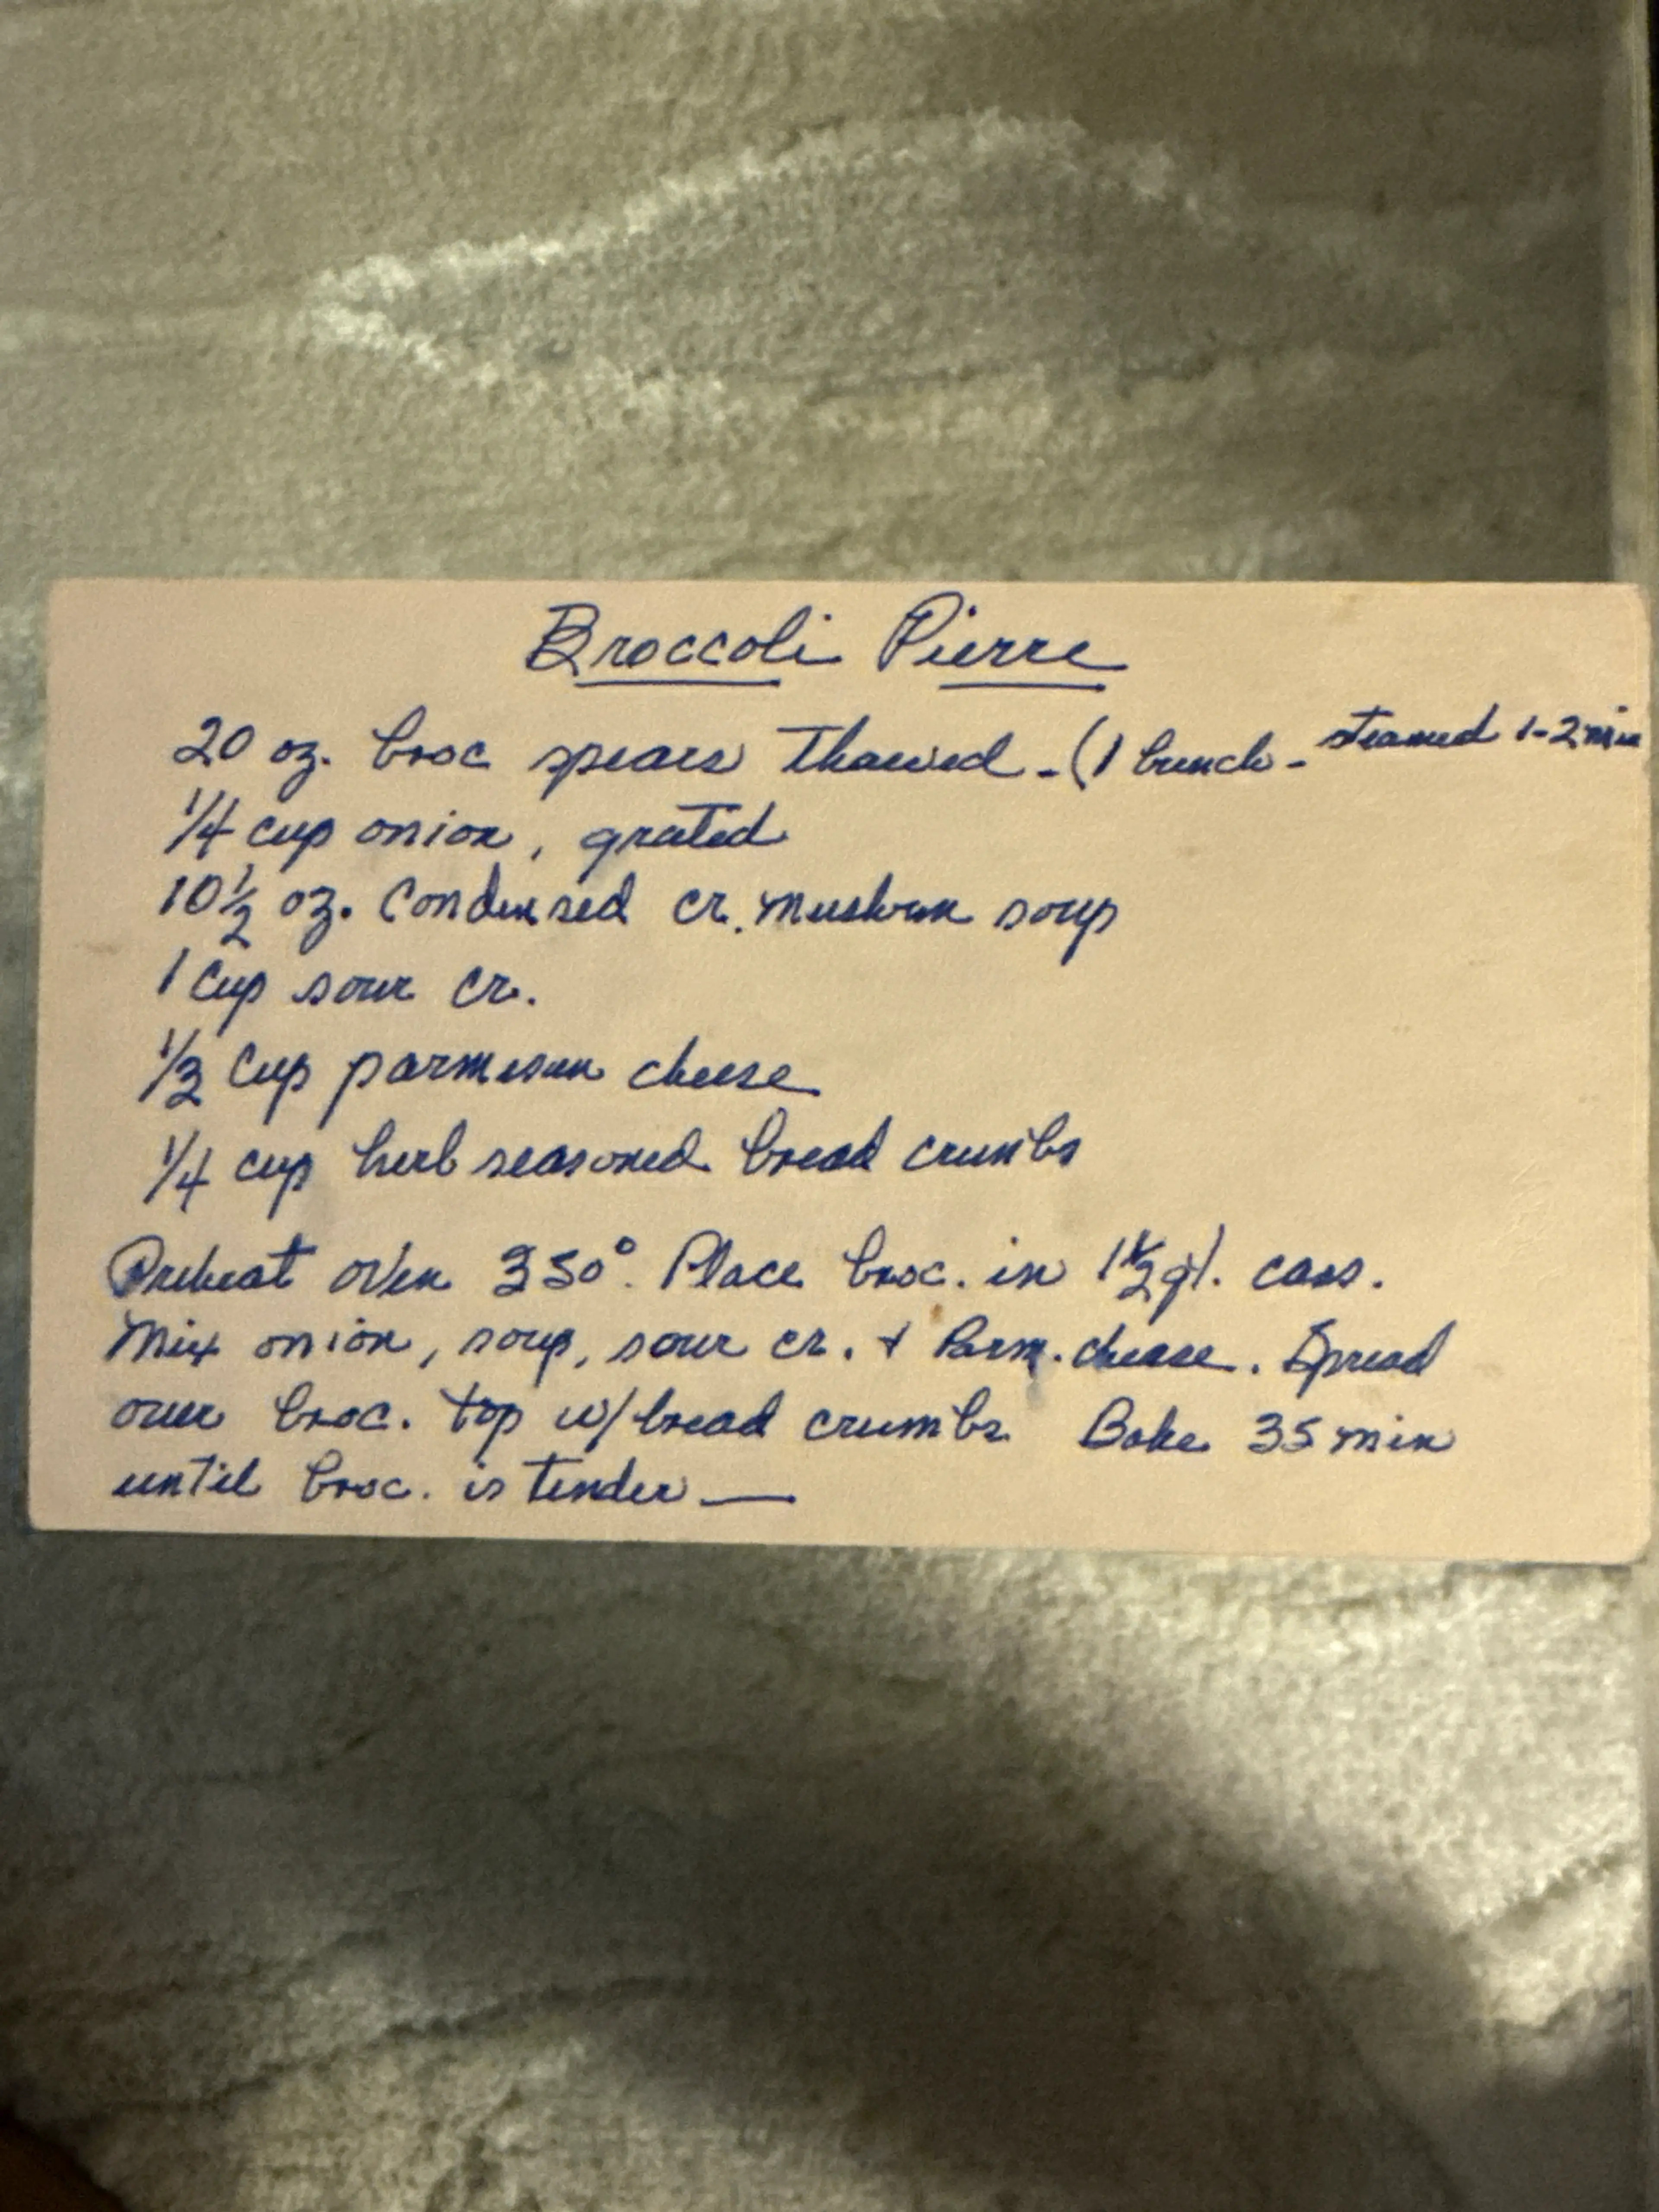 Broccoli Pierre
20 oz. broc spears thawed - (1 bunch - steamed 1-2 min
1/4 cup onion, grated
10 1/2 oz. Condensed cr. mushrm soup
1 cup sour cr.
1/3 cup parmesan cheese
1/4 cup herb seasoned bread crumbs
Preheat oven 350°. Place broc. in 1 1/2 qt. cass.
Mix onion, soup, sour cr. + Parm. cheese. Spread
over broc. top w/ bread crumbs Bake 35 min
until broc. is tender —